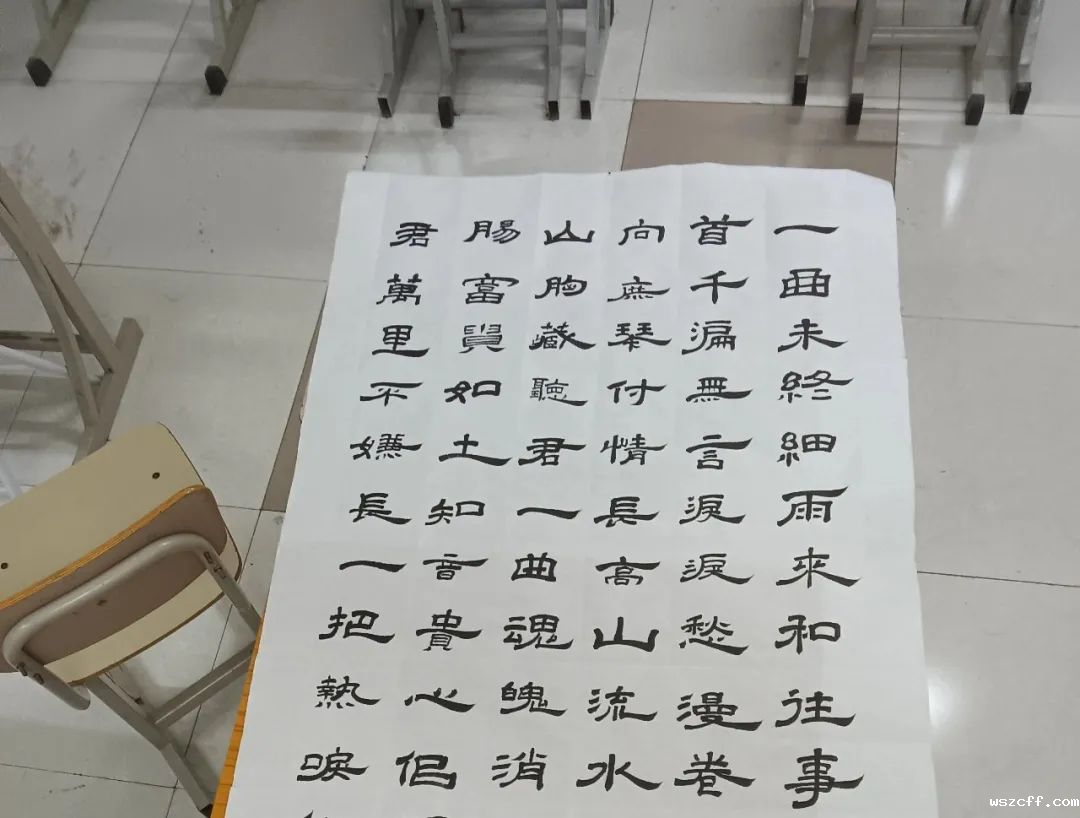 一曲未終細雨來和往事
首千徧無言淚淚愁漫卷
向庶琴付情長高山流水
山胸藏聽君一曲魂魄消
腸富貴如土知音貴心侣
君萬里不嫌長一把熱淚
wszcff.com